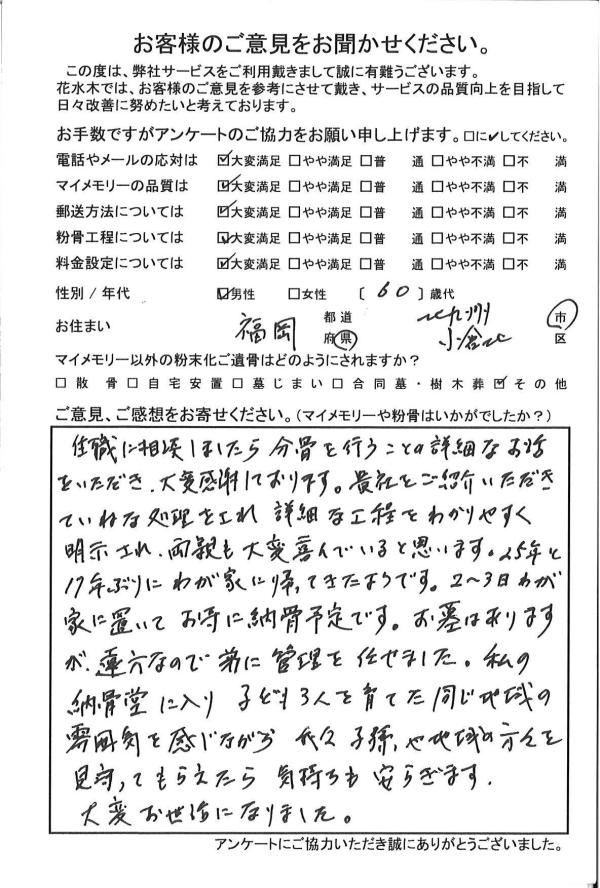 お客様のご意見をお聞かせください。
この度は、弊社サービスをご利用戴きまして誠に有難うございます。
花水木では、お客様のご意見を参考にさせて戴き、サービスの品質向上を目指して
日々改善に努めたいと考えております。
お手数ですがアンケートのご協力をお願い申し上げます。□に✓してください。
電話やメールの応対は ☑大変満足 □やや満足 □普 通 □やや不満 □不 満
マイメモリーの品質は ☑大変満足 □やや満足 □普 通 □やや不満 □不 満
郵送方法については ☑大変満足 □やや満足 □普 通 □やや不満 □不 満
粉骨工程については ☑大変満足 □やや満足 □普 通 □やや不満 □不 満
料金設定については ☑大変満足 □やや満足 □普 通 □やや不満 □不 満
性別 / 年代 ☑男性 □女性 〔 60 〕歳代
お住まい 福岡 都道府県 北九州 小倉北 市区
マイメモリー以外の粉末化ご遺骨はどのようにされますか？
□散 骨 □自宅安置 □墓じまい □合同墓・樹木葬 ☑その他
ご意見、ご感想をお寄せください。(マイメモリーや粉骨はいかがでしたか？)
住職に相談しましたら 分骨を行うことの詳細なお話
をいただき、大変感謝しております。貴社をご紹介いただき
ていねいな処理をされ 詳細な工程をわかりやすく
明示され、両親も大変喜んでいると思います。25年と
17年ぶりにわが家に帰ってきたようです。2〜3日わが
家に置いて お寺に納骨予定です。お墓はあります
が、遠方なので 弟に管理を任せました。私の
納骨堂に入り 子ども3人を育てた同じ地域の
雰囲気を感じながら 子孫、や地域の方々を
見守ってもらえたら 気持ちも 安らぎます。
大変お世話になりました。
アンケートにご協力いただき誠にありがとうございました。